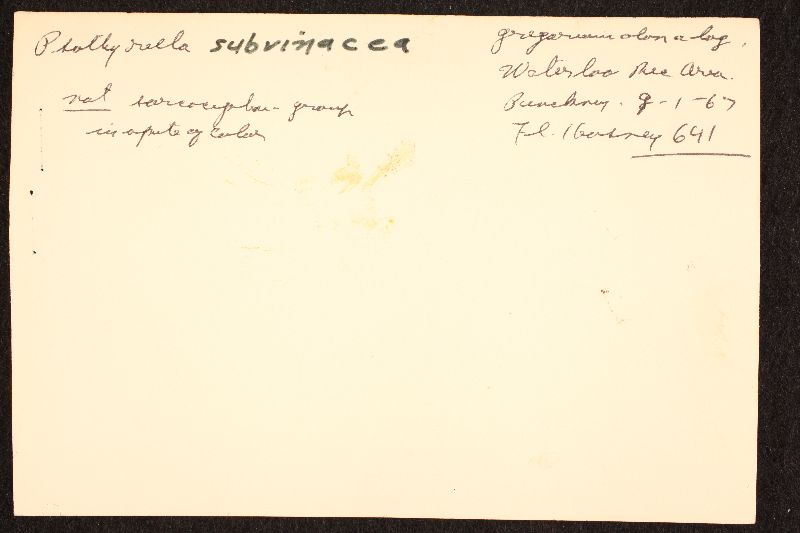 Psathyrella subvinacea
not sarcocephala - group
in spite of color
gregarious on a log,
Waterloo Rec Area.
Pinckney. 9-1-67
Fl. Hoseney 641